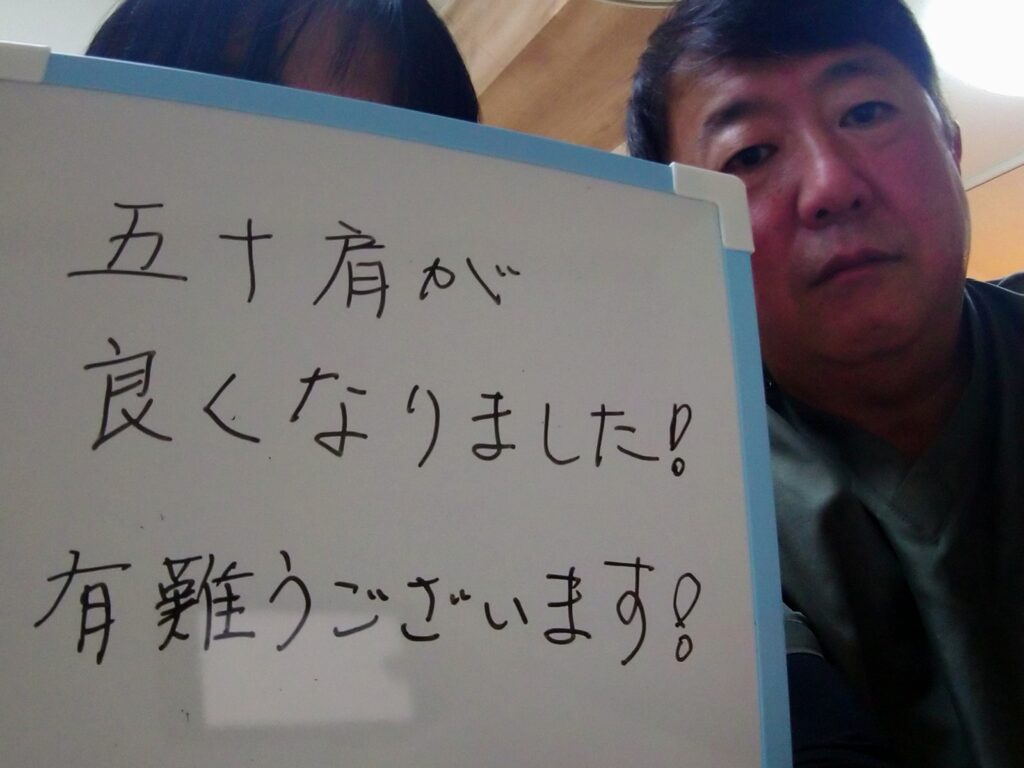 五十肩が
良くなりました!
有難うございます!